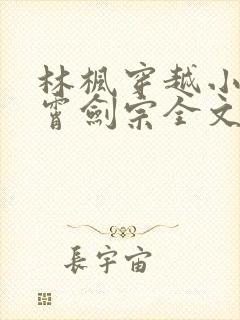 林楓穿越小
霄劍宗全文
長宇宙